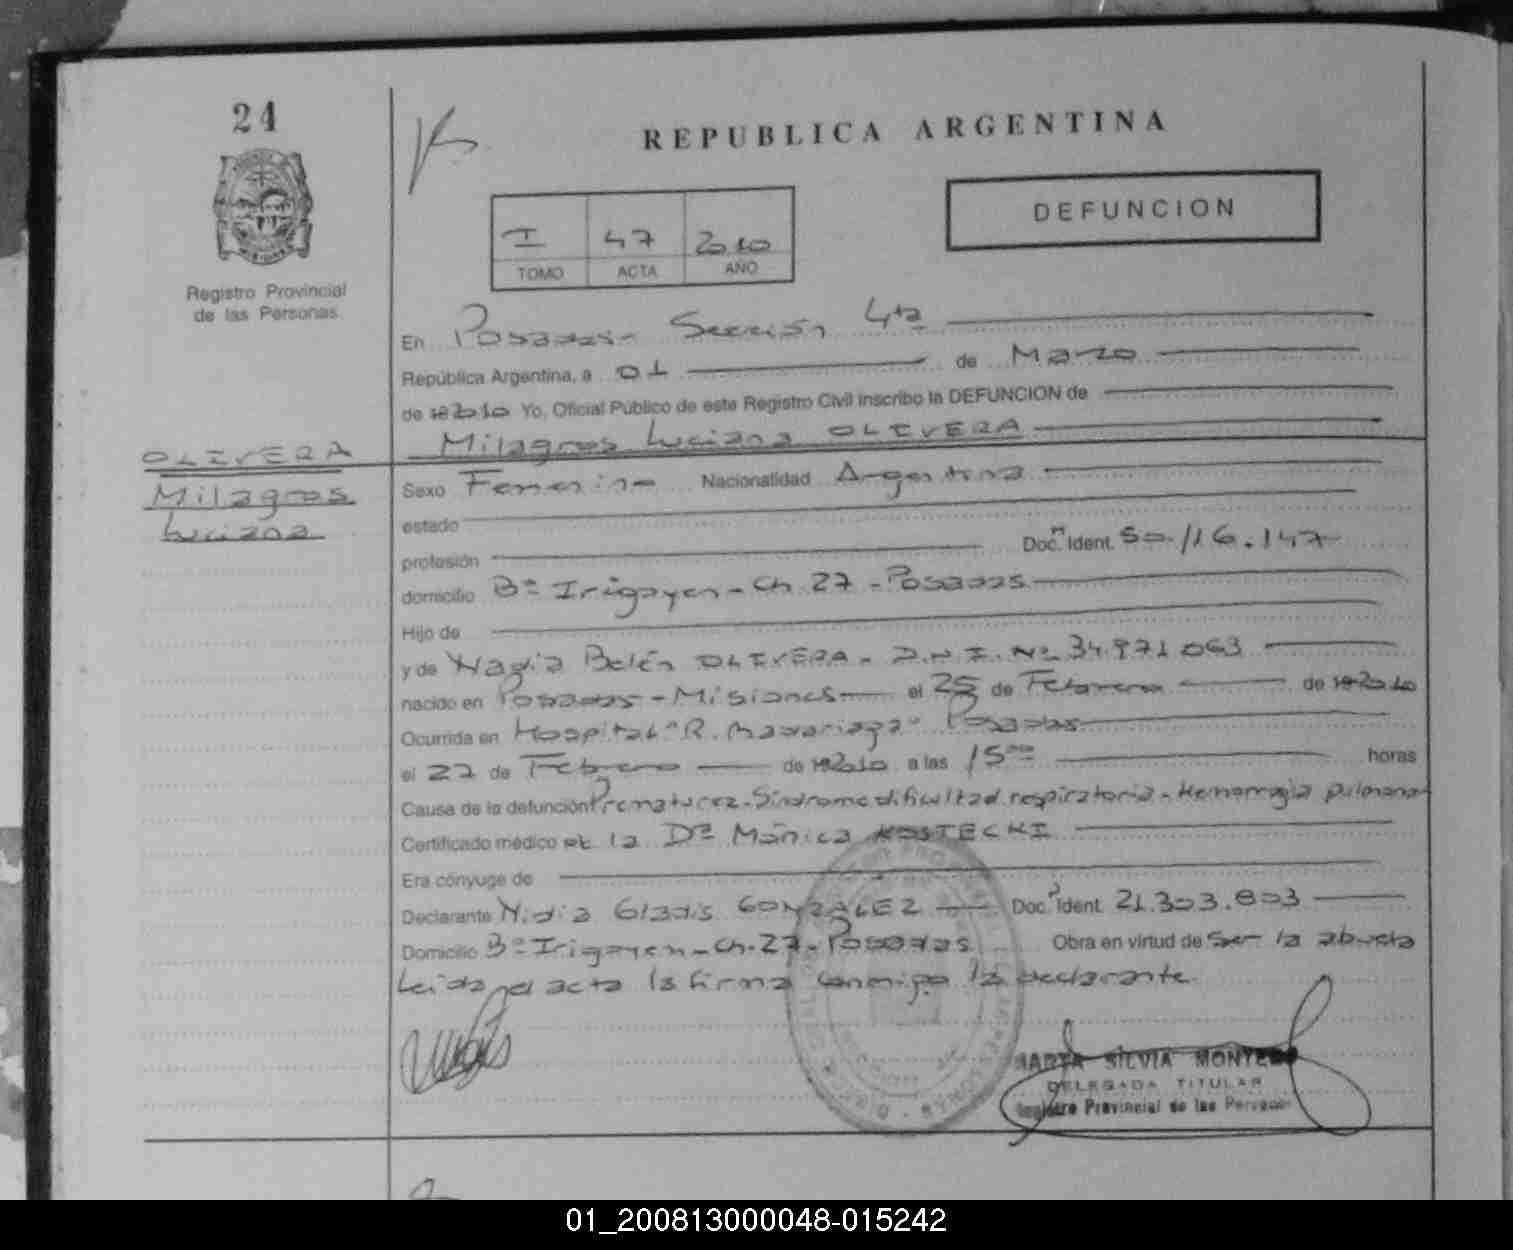 24
REPUBLICA ARGENTINA
DEFUNCION
I 47 2010
TOMO ACTA AÑO
Registro Provincial
de las Personas
En Posadas- Sección 4ta
República Argentina, a 01 de Marzo
de 2010 Yo, Oficial Público de este Registro Civil inscribo la DEFUNCION de
Milagros Luciana OLIVERA
OLIVERA
Milagros
Luciana
Sexo Femenino Nacionalidad Argentina
estado
profesión Doc. Ident. 50.116.147
domicilio Bº Irigoyen - Ch. 27 - Posadas
Hijo de
y de Nadia Belén OLIVERA - D.N.I. Nº 34.971.063
nacido en Posadas - Misiones el 25 de Febrero de 2010
Ocurrida en Hospital "R. Madariaga" Posadas
el 27 de Febrero de 2010 a las 15 horas
Causa de la defunción Prematurez - Síndrome dificultad respiratoria - Hemorragia pulmonar
Certificado médico de la Dra Mónica KOSTECKI
Era cónyuge de
Declarante Nidia Gladis GONZALEZ Doc. Ident. 21.303.803
Domicilio Bº Irigoyen - Ch. 27 - Posadas Obra en virtud de ser la abuela
Leida el acta la firma conmigo la declarante.
MARTA SILVIA MONTERO
DELEGADA TITULAR
Registro Provincial de las Personas
01_200813000048-015242